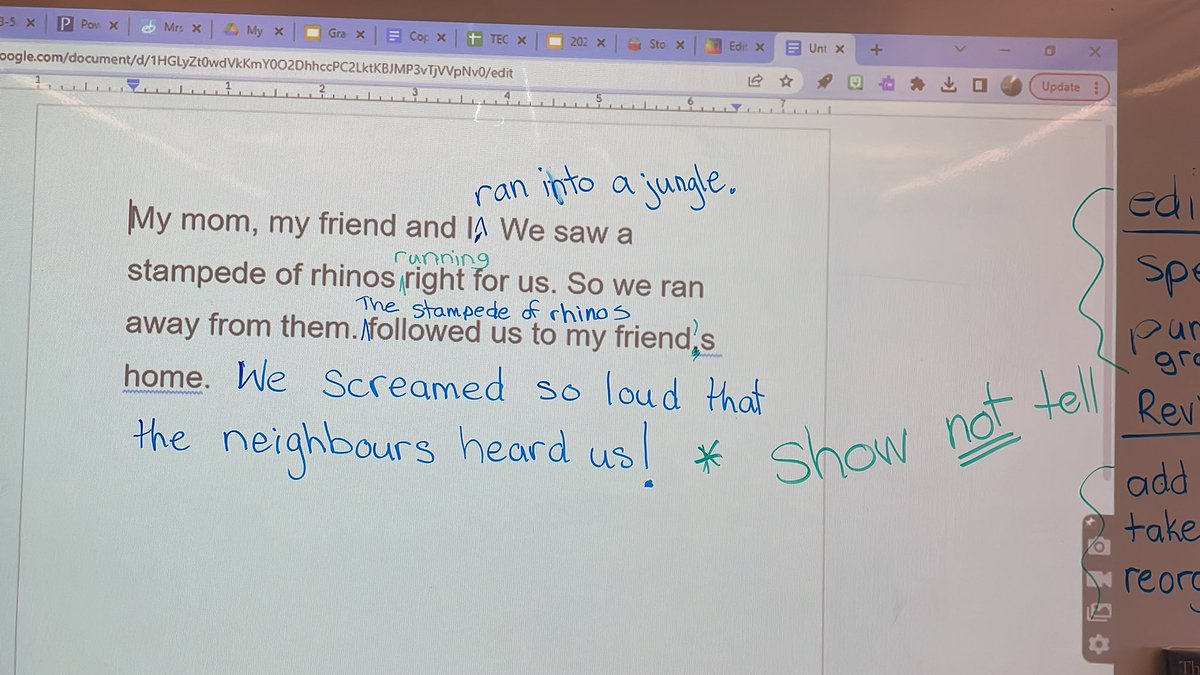 3-5
Pow
Mrs
My
Gra
Cop
TEC
202
Sto
Edit
Unt
oogle.com/document/d/1HGLyZt0wdVkKmY0O2DhhccPC2LktKBJMP3vTjVVpNv0/edit
Update
1 1 2 3 4 5 6 7
ran into a jungle.
My mom, my friend and I We saw a
running
stampede of rhinos right for us. So we ran
The stampede of rhinos
away from them. followed us to my friend's
home. We screamed so loud that
the neighbours heard us! * show not tell
edi
spe
pun
gra
Revi
add
take
reorg
Th